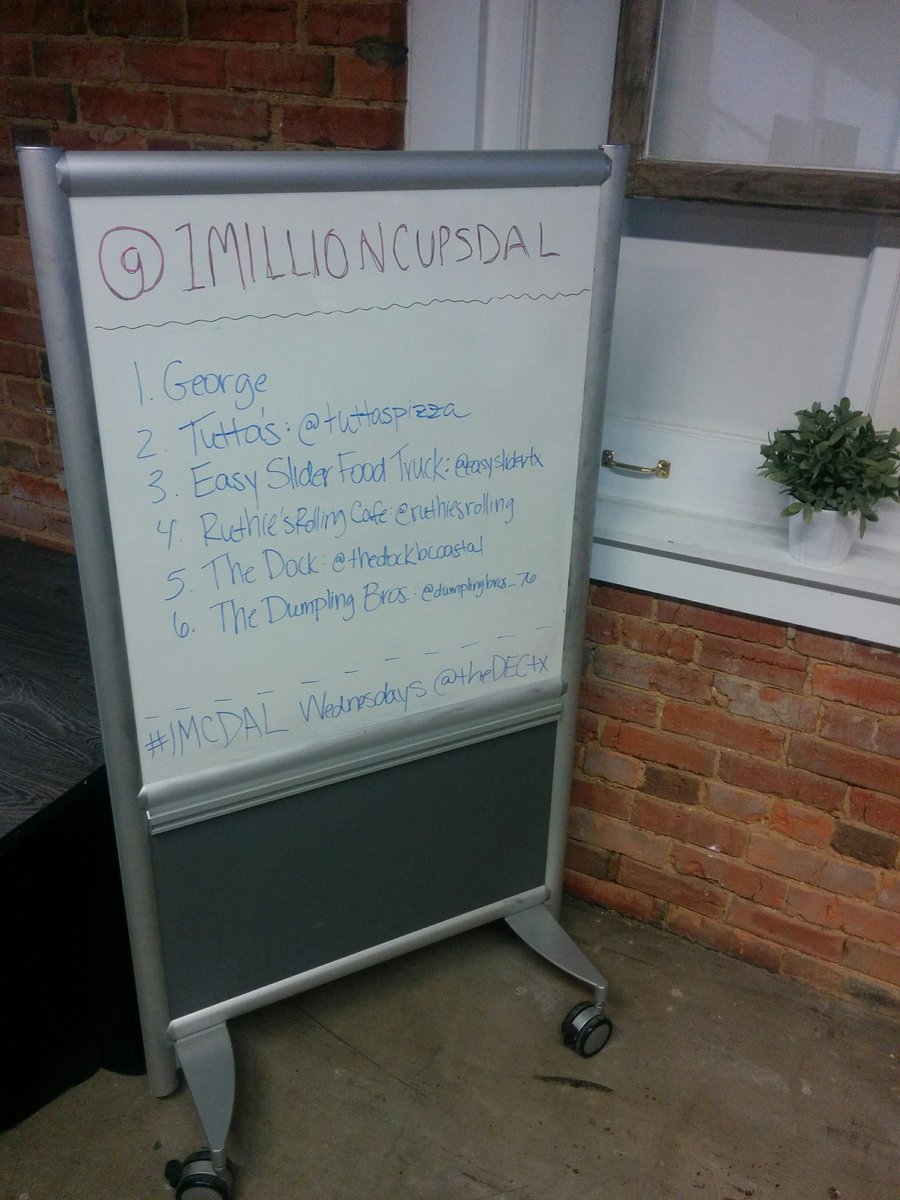 @1MILLIONCUPSDAL
1. George
2. Tutta's: @tuttaspizza
3. Easy Slider Food Truck: @easyslidertx
4. Ruthie's Rolling Cafe: @ruthiesrolling
5. The Dock: @thedockbcoastal
6. The Dumpling Bros.: @dumplingbros_76
#1MCDAL Wednesdays @theDECtx